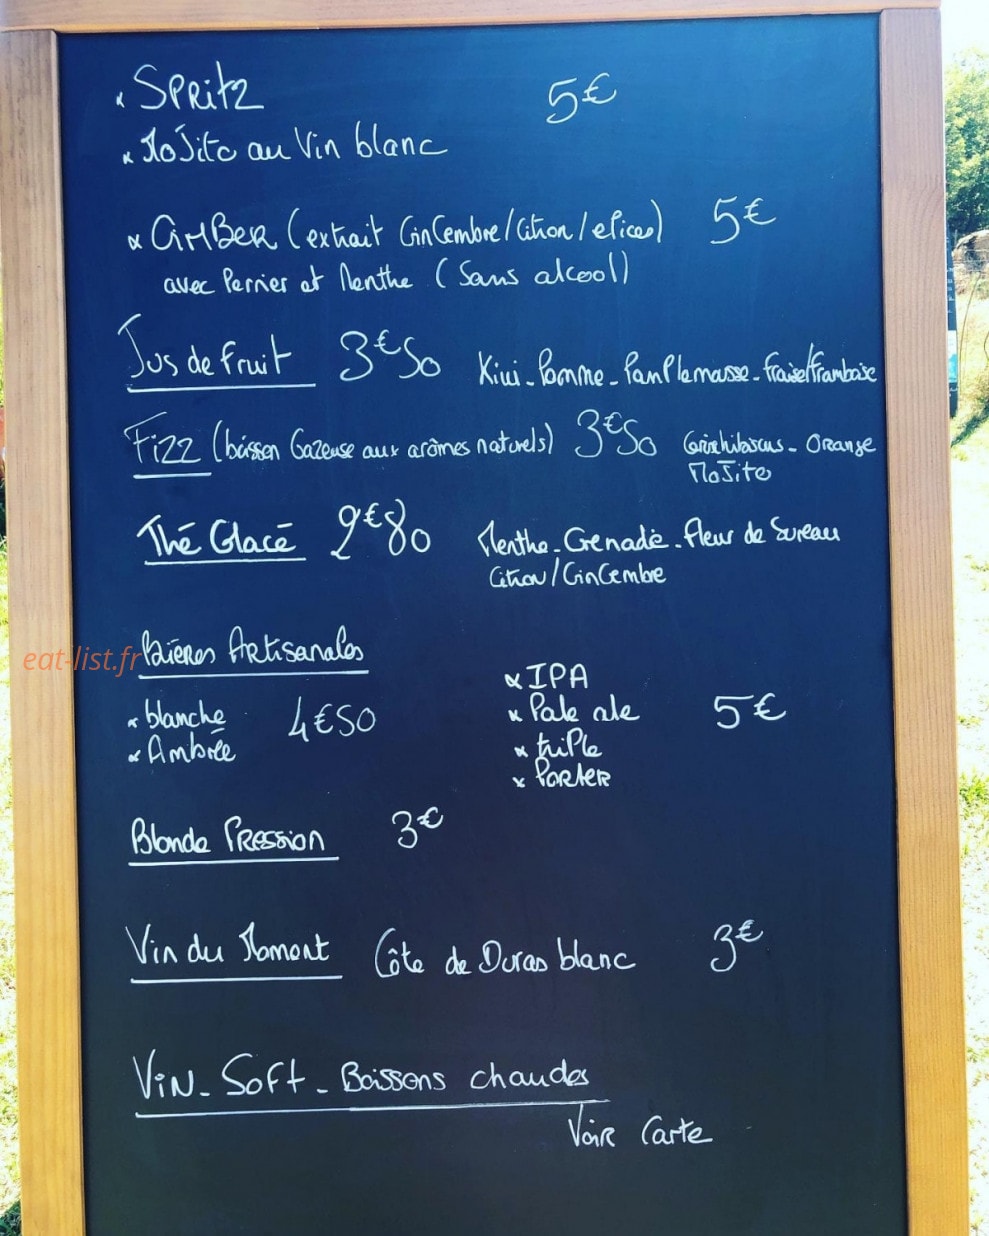 x Spritz 5€
x Mojito au Vin blanc
x GiMBER (extrait GinGembre/Citron/epices) 5€
avec Perrier et Menthe (Sans alcool)
Jus de Fruit 3€50 Kiwi - Pomme - Pamplemousse - fraise/framboise
Fizz (boisson Gazeuse aux arômes naturels) 3€50 hibiscus - Orange
MoJito
Thé Glacé 2€80 Menthe - Grenade - Fleur de Sureau
Citron/GinGembre
eat-list.fr
Bières Artisanales
x IPA
x blanche 4€50 x Pale ale 5€
x Ambrée x triple
x Porter
Blonde PRession 3€
Vin du Moment Côte de Duras blanc 3€
ViN - Soft - Boissons chaudes
Voir Carte